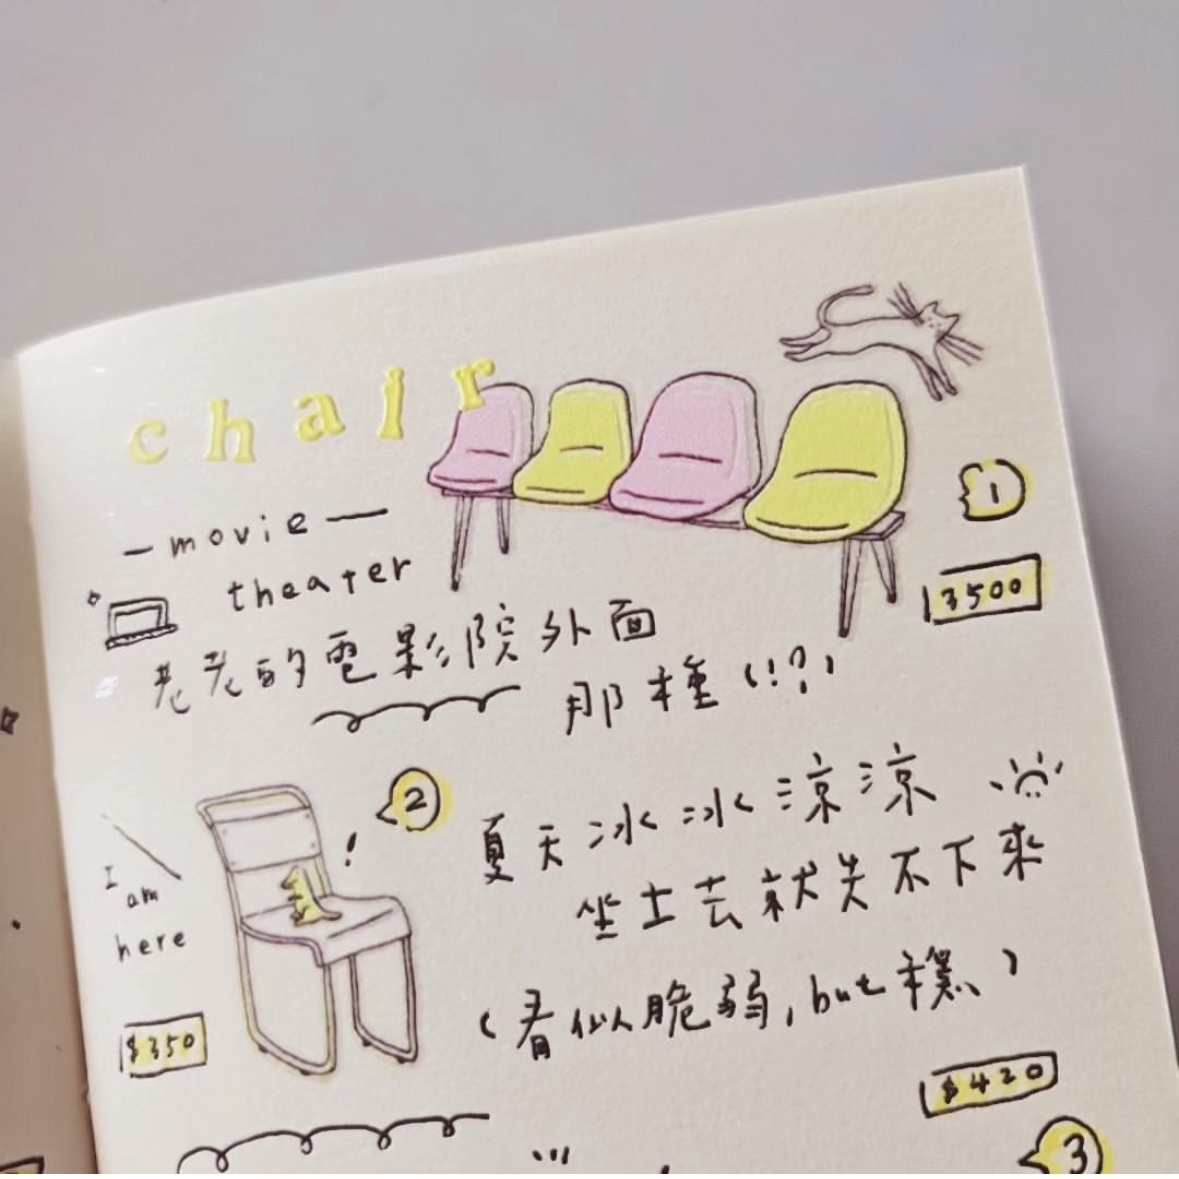 chair
①
— movie —
theater
3500
老老的電影院外面
那種(!?)
②
!
夏天冰冰涼涼
坐上去就失不下來
I
am
here
(看似脆弱,but 撐)
$350
$420
③